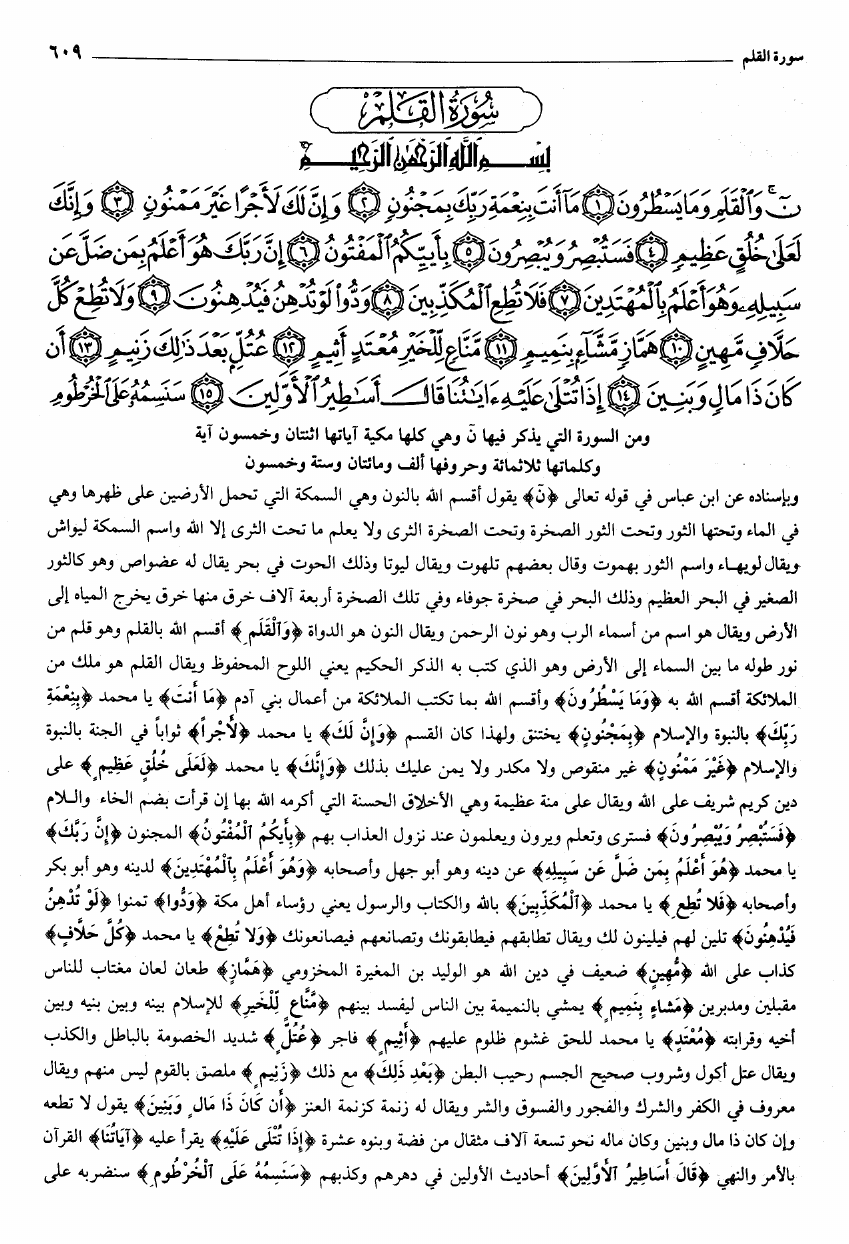 سورة القلم ٦٠٩
سُورَةُ القَلَمِ
بِسْمِ اللَّهِ الرَّحْمَٰنِ الرَّحِيمِ
نٓ ۚ وَٱلْقَلَمِ وَمَا يَسْطُرُونَ ١ مَآ أَنتَ بِنِعْمَةِ رَبِّكَ بِمَجْنُونٍ ٢ وَإِنَّ لَكَ لَأَجْرًا غَيْرَ مَمْنُونٍ ٣ وَإِنَّكَ
لَعَلَىٰ خُلُقٍ عَظِيمٍ ٤ فَسَتُبْصِرُ وَيُبْصِرُونَ ٥ بِأَييِّكُمُ ٱلْمَفْتُونُ ٦ إِنَّ رَبَّكَ هُوَ أَعْلَمُ بِمَن ضَلَّ عَن
سَبِيلِهِۦ وَهُوَ أَعْلَمُ بِٱلْمُهْتَدِينَ ٧ فَلَا تُطِعِ ٱلْمُكَذِّبِينَ ٨ وَدُّوا۟ لَوْ تُدْهِنُ فَيُدْهِنُونَ ٩ وَلَا تُطِعْ كُلَّ
حَلَّافٍ مَّهِينٍ ١٠ هَمَّازٍ مَّشَّآءٍۭ بِنَمِيمٍ ١١ مَّنَّاعٍ لِّلْخَيْرِ مُعْتَدٍ أَثِيمٍ ١٢ عُتُلٍّۭ بَعْدَ ذَٰلِكَ زَنِيمٍ ١٣ أَن
كَانَ ذَا مَالٍ وَبَنِينَ ١٤ إِذَا تُتْلَىٰ عَلَيْهِ ءَايَٰتُنَا قَالَ أَسَٰطِيرُ ٱلْأَوَّلِينَ ١٥ سَنَسِمُهُۥ عَلَى ٱلْخُرْطُومِ
ومن السورة التي يذكر فيها نٓ وهي كلها مكية آياتها اثنتان وخمسون آية
وكلماتها ثلاثمائة وحروفها ألف ومائتان وستة وخمسون
وبإسناده عن ابن عباس في قوله تعالى ﴿نٓ﴾ يقول أقسم الله بالنون وهي السمكة التي تحمل الأرضين على ظهرها وهي
في الماء وتحتها الثور وتحت الثور الصخرة وتحت الصخرة الثرى ولا يعلم ما تحت الثرى إلا الله واسم السمكة ليواش
ويقال لويهاء واسم الثور بهموت وقال بعضهم تلهوت ويقال ليوتا وذلك الحوت في بحر يقال له عضواص وهو كالثور
الصغير في البحر العظيم وذلك البحر في صخرة جوفاء وفي تلك الصخرة أربعة آلاف خرق منها خرق يخرج المياه إلى
الأرض ويقال هو اسم من أسماء الرب وهو نون الرحمن ويقال النون هو الدواة ﴿وَٱلْقَلَمِ﴾ أقسم الله بالقلم وهو قلم من
نور طوله ما بين السماء إلى الأرض وهو الذي كتب به الذكر الحكيم يعني اللوح المحفوظ ويقال القلم هو ملك من
الملائكة أقسم الله به ﴿وَمَا يَسْطُرُونَ﴾ وأقسم الله بما تكتب الملائكة من أعمال بني آدم ﴿مَا أَنتَ﴾ يا محمد ﴿بِنِعْمَةِ
رَبِّكَ﴾ بالنبوة والإسلام ﴿بِمَجْنُونٍ﴾ يختنق ولهذا كان القسم ﴿وَإِنَّ لَكَ﴾ يا محمد ﴿لَأَجْراً﴾ ثواباً في الجنة بالنبوة
والإسلام ﴿غَيْرَ مَمْنُونٍ﴾ غير منقوص ولا مكدر ولا يمن عليك بذلك ﴿وَإِنَّكَ﴾ يا محمد ﴿لَعَلَى خُلُقٍ عَظِيمٍ﴾ على
دين كريم شريف على الله ويقال على منة عظيمة وهي الأخلاق الحسنة التي أكرمه الله بها إن قرأت بضم الخاء والـلام
﴿فَسَتُبْصِرُ وَيُبْصِرُونَ﴾ فسترى وتعلم ويرون ويعلمون عند نزول العذاب بهم ﴿بِأَيِّكُمُ الْمُفْتُونُ﴾ المجنون ﴿إِنَّ رَبَّكَ﴾
يا محمد ﴿هُوَ أَعْلَمُ بِمَن ضَلَّ عَن سَبِيلِهِ﴾ عن دينه وهو أبو جهل وأصحابه ﴿وَهُوَ أَعْلَمُ بِٱلْمُهْتَدِينَ﴾ لدينه وهو أبو بكر
وأصحابه ﴿فَلَا تُطِعِ﴾ يا محمد ﴿ٱلْمُكَذِّبِينَ﴾ بالله والكتاب والرسول يعني رؤساء أهل مكة ﴿وَدُّوا﴾ تمنوا ﴿لَوْ تُدْهِنُ
فَيُدْهِنُونَ﴾ تلين لهم فيلينون لك ويقال تطابقهم فيطابقونك وتصانعهم فيصانعونك ﴿وَلا تُطِعْ﴾ يا محمد ﴿كُلَّ حَلَّافٍ﴾
كذاب على الله ﴿مَّهِينٍ﴾ ضعيف في دين الله هو الوليد بن المغيرة المخزومي ﴿هَمَّازٍ﴾ طعان لعان مغتاب للناس
مقبلين ومدبرين ﴿مَشاءٍ بِنَمِيمٍ﴾ يمشي بالنميمة بين الناس ليفسد بينهم ﴿مَّنَّاعٍ لِّلْخَيرِ﴾ للإسلام بينه وبين بنيه وبين
أخيه وقرابته ﴿مُعْتَدٍ﴾ يا محمد للحق غشوم ظلوم عليهم ﴿أَثِيمٍ﴾ فاجر ﴿عُتُلٍّ﴾ شديد الخصومة بالباطل والكذب
ويقال عتل أكول وشروب صحيح الجسم رحيب البطن ﴿بَعْدَ ذَلِكَ﴾ مع ذلك ﴿زَنِيمٍ﴾ ملصق بالقوم ليس منهم ويقال
معروف في الكفر والشرك والفجور والفسوق والشر ويقال له زنمة كزنمة العنز ﴿أَن كَانَ ذَا مَالٍ وَبَنِينَ﴾ يقول لا تطعه
وإن كان ذا مال وبنين وكان ماله نحو تسعة آلاف مثقال من فضة وبنوه عشرة ﴿إِذَا تُتْلَى عَلَيْهِ﴾ يقرأ عليه ﴿آيَاتُنَا﴾ القرآن
بالأمر والنهي ﴿قَالَ أَساطِيرُ ٱلأَوَّلِينَ﴾ أحاديث الأولين في دهرهم وكذبهم ﴿سَنَسِمُهُ عَلَى ٱلْخُرْطُومِ﴾ سنضربه على